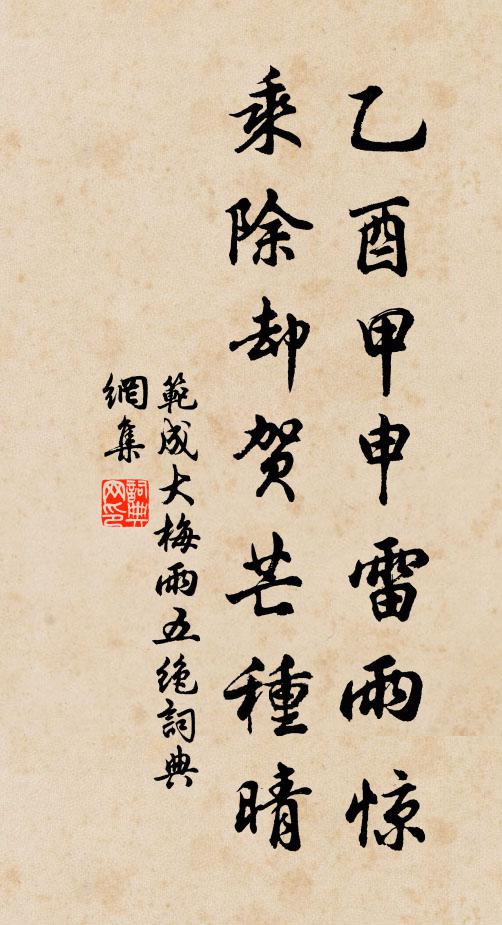 乙酉甲申雷雨惊
乘除却贺芒種晴
範成大梅雨五绝詞典
網集
詞典
网印